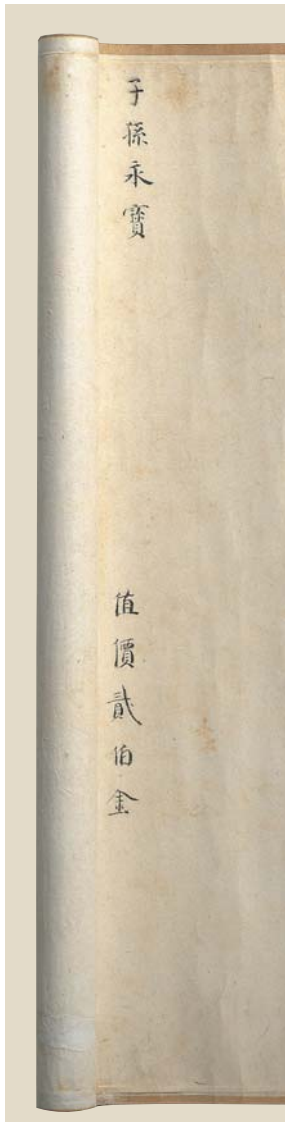 子孫永寶
值價貳伯金